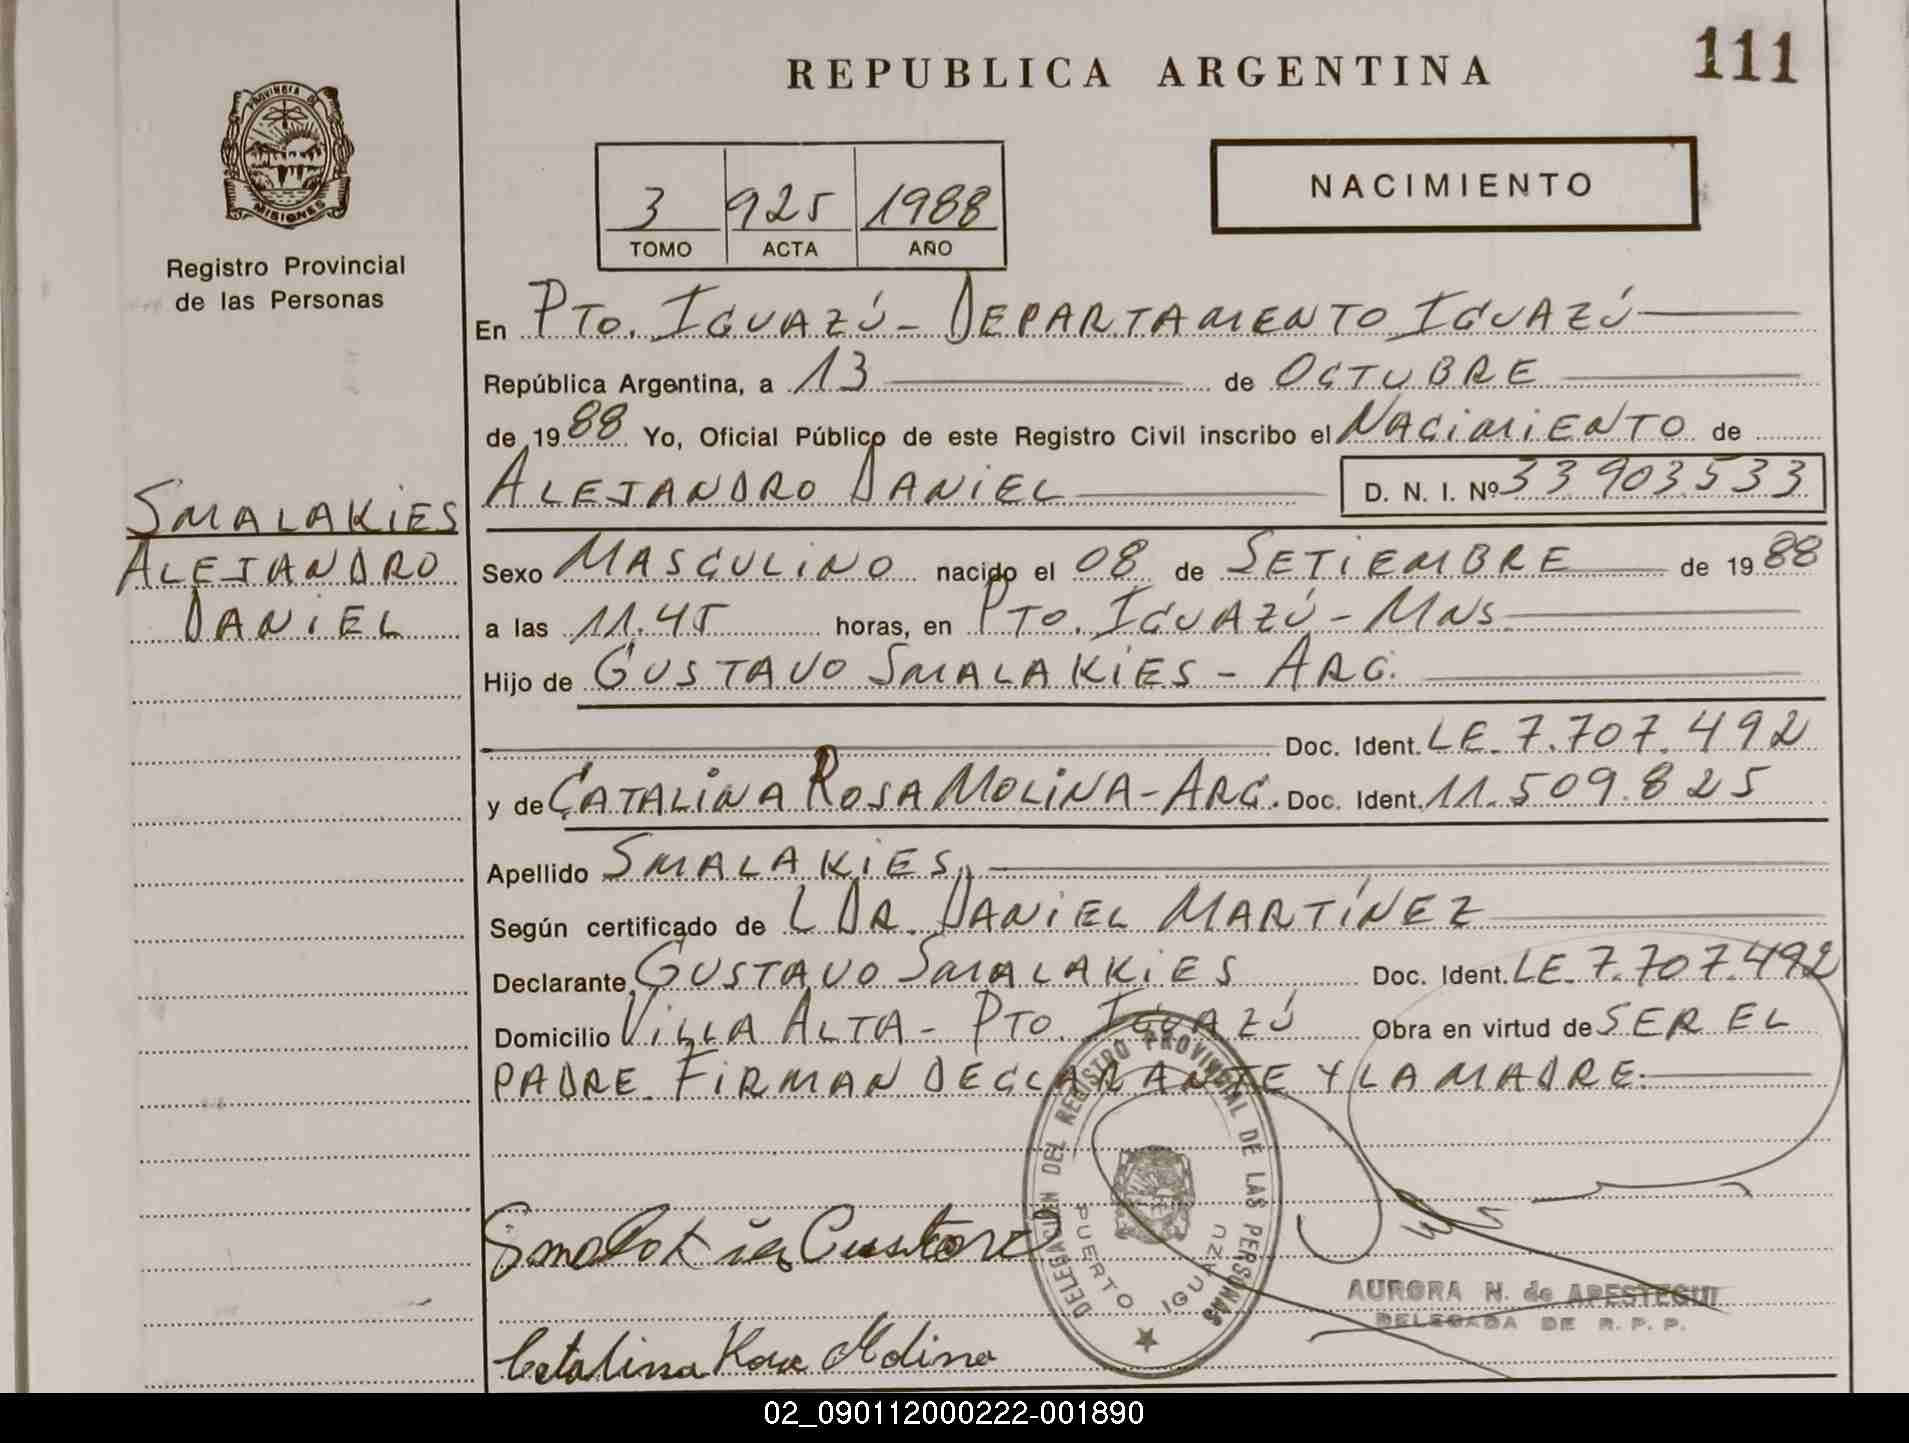 REPUBLICA ARGENTINA
111
PROVINCIA DE
MISIONES
Registro Provincial
de las Personas
3 925 1988
TOMO ACTA AÑO
NACIMIENTO
En PTO. IGUAZÚ - DEPARTAMENTO IGUAZÚ
República Argentina, a 13 de OCTUBRE
de 1988 Yo, Oficial Público de este Registro Civil inscribo el NACIMIENTO de
ALEJANDRO DANIEL D. N. I. Nº 33903533
SMALAKIES
ALEJANDRO
DANIEL
Sexo MASCULINO nacido el 08 de SETIEMBRE de 1988
a las 11.45 horas, en PTO. IGUAZÚ - MNS
Hijo de GUSTAVO SMALAKIES - ARG.
Doc. Ident. LE. 7.707.492
y de CATALINA ROSA MOLINA - ARG. Doc. Ident. 11.509.825
Apellido SMALAKIES
Según certificado de L DR. DANIEL MARTÍNEZ
Declarante GUSTAVO SMALAKIES Doc. Ident. LE. 7.707.492
Domicilio VILLA ALTA - PTO. IGUAZÚ Obra en virtud de SER EL
PADRE. FIRMAN DECLARANTE Y LA MADRE.
DELEGACION DEL REGISTRO PROVINCIAL DE LAS PERSONAS
PUERTO IGUAZU
Smalakies Gustavo
AURORA N. de APESTEGUI
DELEGADA DE R. P. P.
Catalina Rosa Molina
02_090112000222-001890